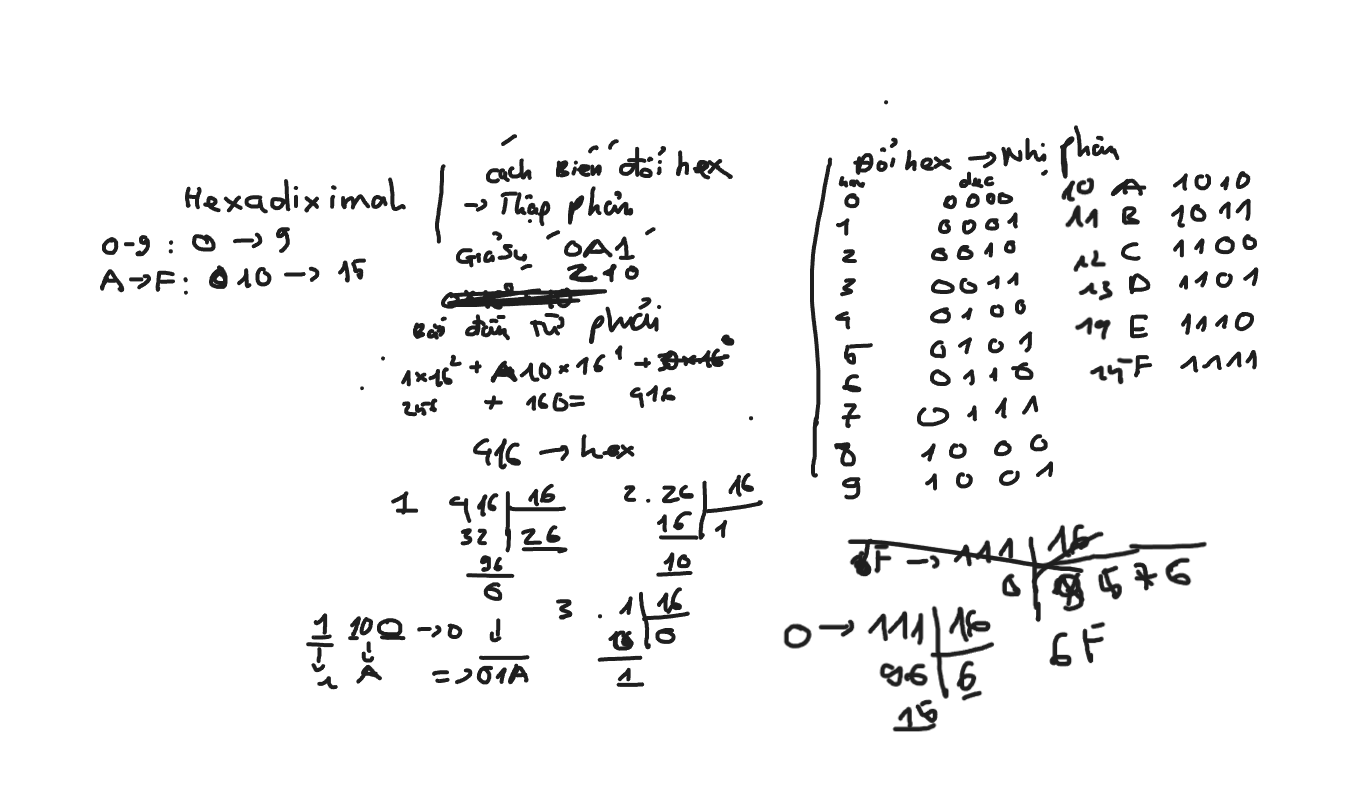 Hexadiximal
0-9 : 0 → 9
A→F : 10 → 15
cách Biến đổi hex
→ Thập phân
Giả sử 0A1
210
Bắt đầu từ phải
1×16² + 10×16¹ +
256 + 160 = 416
416 → hex
1 416 16
32 26
96
0
2. 26 16
16 1
10
3. 1 16
0
1
1 10 0 → 0 ↓
1 A => 01A
Đổi hex → Nhị phân
hex dec
0 0000
1 0001
2 0010
3 0011
4 0100
5 0101
6 0110
7 0111
8 1000
9 1001
10 A 1010
11 B 1011
12 C 1100
13 D 1101
14 E 1110
15 F 1111
F → 111 16
0 576
0 → 111 16
96 6
15
6F